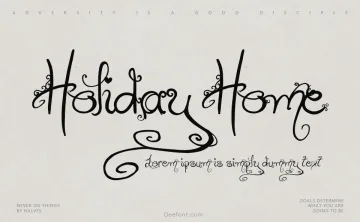 ADVERSITY IS A GOOD DISCIPLE
Holiday Home
Lorem ipsum is simply dummy text
NEVER DO THINGS
BY HALVES
Deefont.com
GOALS DETERMINE
WHAT YOU ARE
GOING TO BE